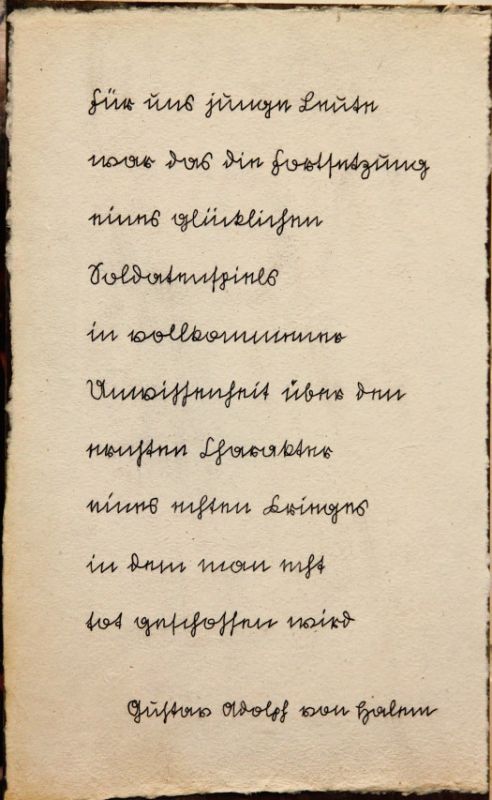 Für uns junge Leute
war das die Fortsetzung
eines glücklichen
Soldatenspiels
in vollkommener
Unwissenheit über den
ernsten Charakter
eines echten Krieges
in dem man echt
tot geschossen wird
Gustav Adolph von Halem